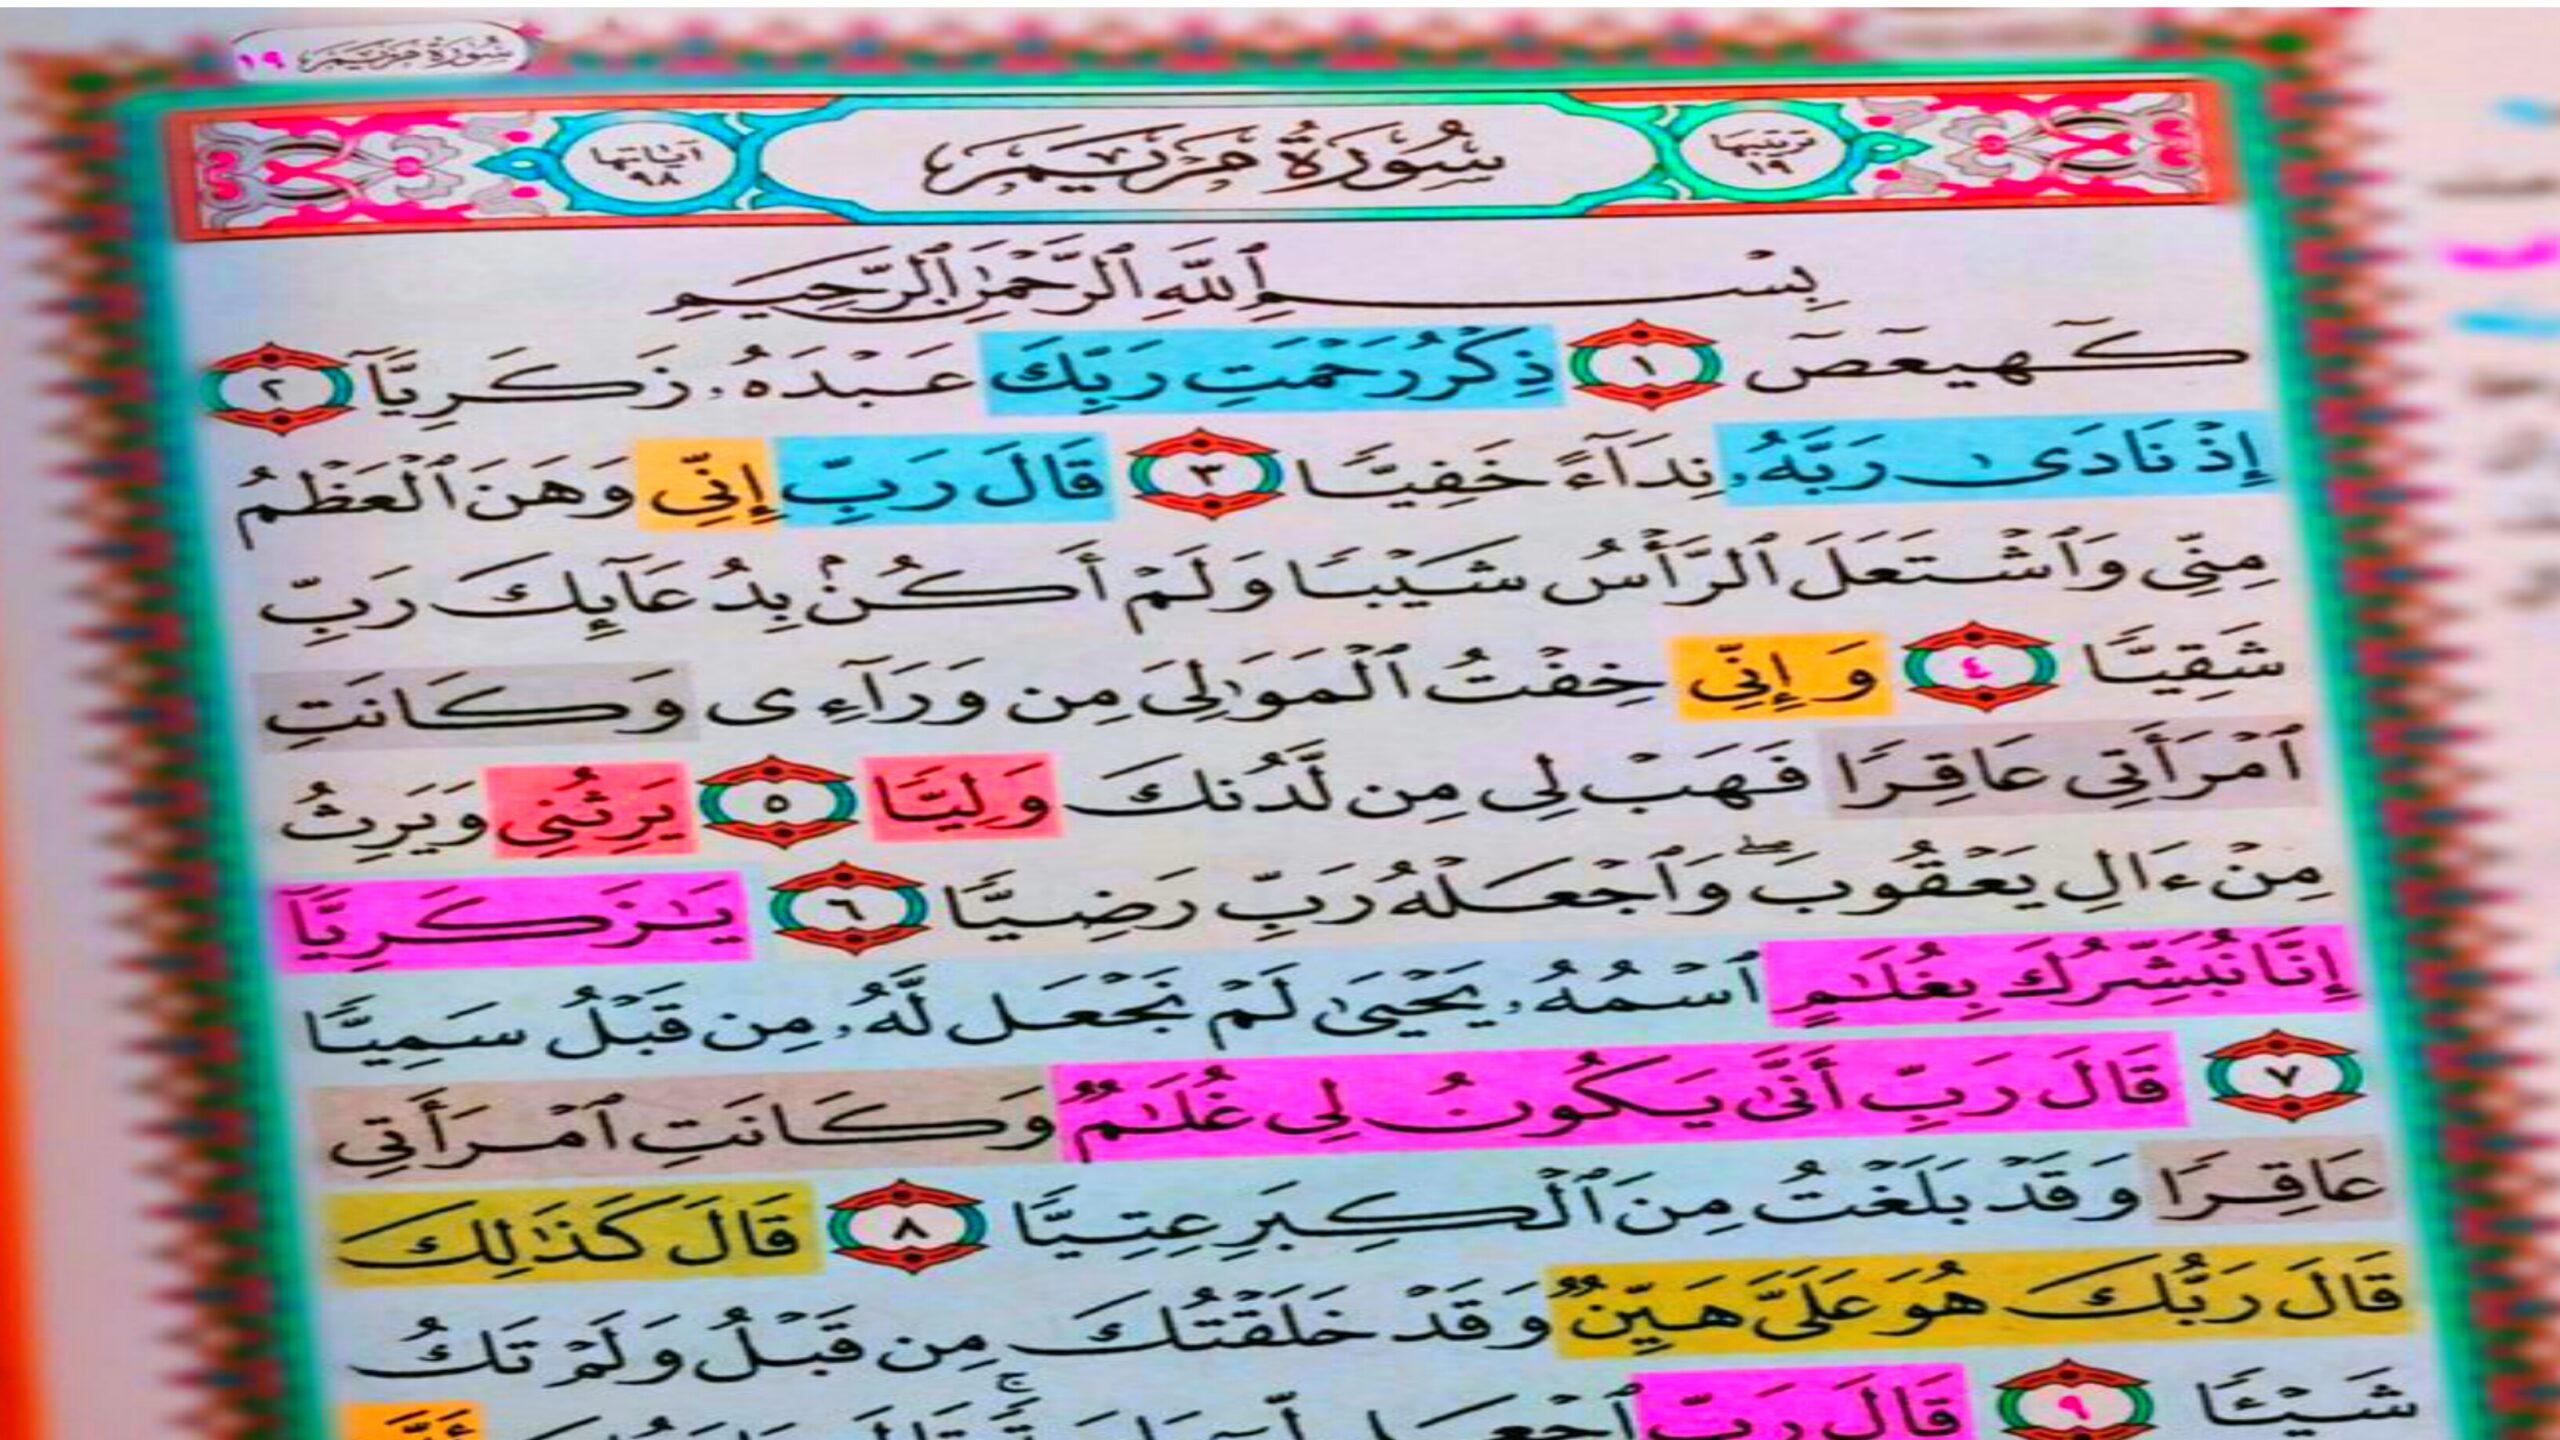 سُورَةُ مَرْيَمَ ١٩
ترتيبها ١٩ سُورَةُ مَرْيَمَ آياتها ٩٨
بِسْمِ ٱللَّهِ ٱلرَّحْمَٰنِ ٱلرَّحِيمِ
كٓهيعٓصٓ ١ ذِكْرُ رَحْمَتِ رَبِّكَ عَبْدَهُۥ زَكَرِيَّآ ٢
إِذْ نَادَىٰ رَبَّهُۥ نِدَآءً خَفِيًّا ٣ قَالَ رَبِّ إِنِّي وَهَنَ ٱلْعَظْمُ
مِنِّي وَٱشْتَعَلَ ٱلرَّأْسُ شَيْبًا وَلَمْ أَكُنۢ بِدُعَآئِكَ رَبِّ
شَقِيًّا ٤ وَإِنِّي خِفْتُ ٱلْمَوَٰلِيَ مِن وَرَآءِي وَكَانَتِ
ٱمْرَأَتِي عَاقِرًا فَهَبْ لِي مِن لَّدُنكَ وَلِيًّا ٥ يَرِثُنِي وَيَرِثُ
مِنْ ءَالِ يَعْقُوبَۖ وَٱجْعَلْهُ رَبِّ رَضِيًّا ٦ يَٰزَكَرِيَّآ
إِنَّا نُبَشِّرُكَ بِغُلَٰمٍ ٱسْمُهُۥ يَحْيَىٰ لَمْ نَجْعَل لَّهُۥ مِن قَبْلُ سَمِيًّا
٧ قَالَ رَبِّ أَنَّىٰ يَكُونُ لِي غُلَٰمٌ وَكَانَتِ ٱمْرَأَتِي
عَاقِرًا وَقَدْ بَلَغْتُ مِنَ ٱلْكِبَرِ عِتِيًّا ٨ قَالَ كَذَٰلِكَ
قَالَ رَبُّكَ هُوَ عَلَيَّ هَيِّنٌ وَقَدْ خَلَقْتُكَ مِن قَبْلُ وَلَمْ تَكُ
شَيْـًٔا ٩ قَالَ رَبِّ ٱجْعَل